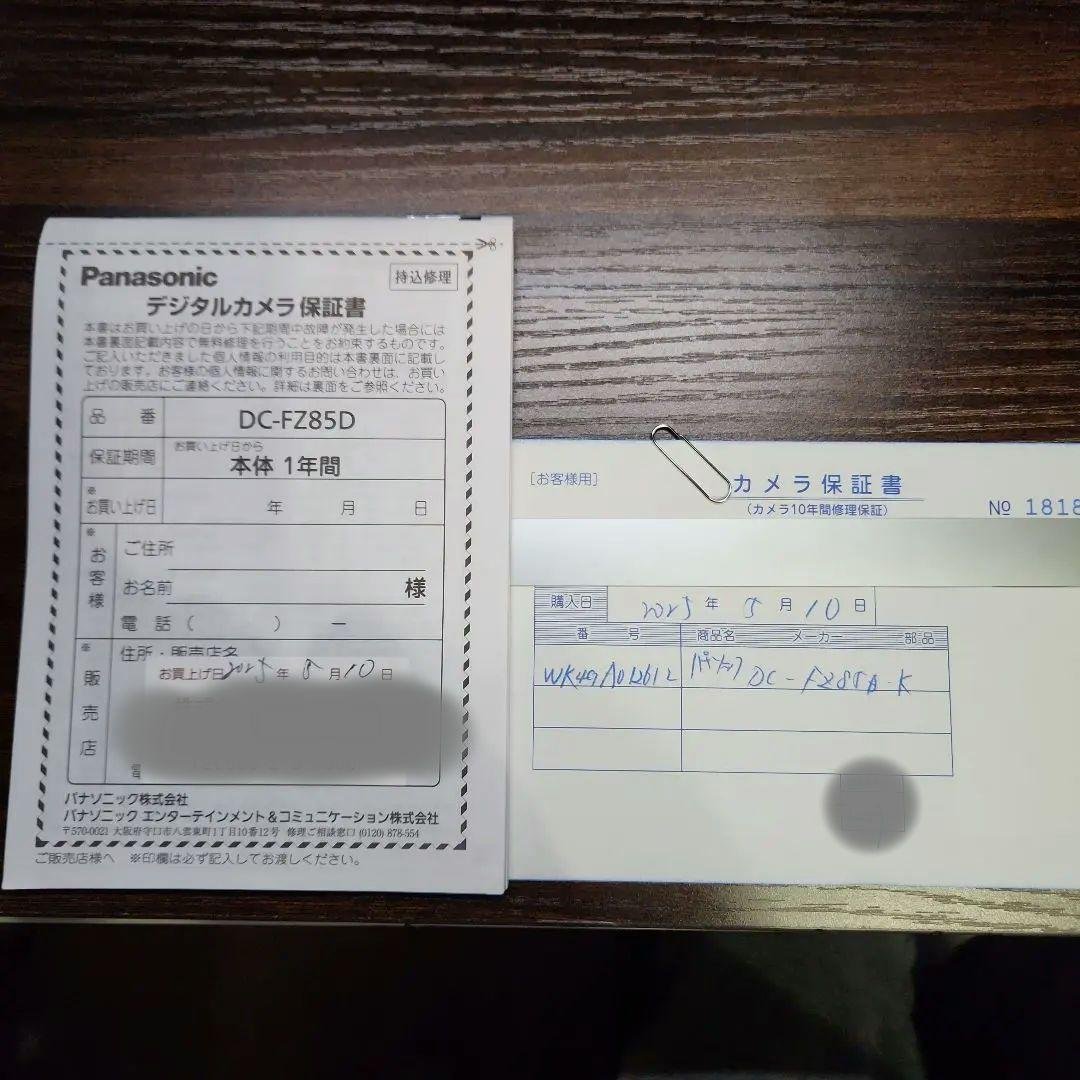 Panasonic
持込修理
デジタルカメラ保証書
本書はお買い上げの日から下記期間中故障が発生した場合には
本書裏面記載内容で無料修理を行うことをお約束するものです。
ご記入いただきました個人情報の利用目的は本書裏面に記載し
ております。お客様の個人情報に関するお問い合わせは、お買い
上げの販売店にご連絡ください。詳細は裏面をご参照ください。
品 番 DC-FZ85D
保証期間 お買い上げ日から
本体 1年間
※お買い上げ日 年 月 日
※お客様
ご住所
お名前 様
電 話 ( ) ー
※販売店
住所・販売店名
お買上げ日 2025年 5月10日
パナソニック株式会社
パナソニック エンターテインメント&コミュニケーション株式会社
〒570-0021 大阪府守口市八雲東町1丁目10番12号 修理ご相談窓口 (0120) 878-554
ご販売店様へ ※印欄は必ず記入してお渡しください。
[お客様用]
カメラ保証書
(カメラ10年間修理保証)
№ 1818
購入日 2025年 5月 10日
番 号 商品名 メーカー 部品
パナソニック DC-FZ85D-K